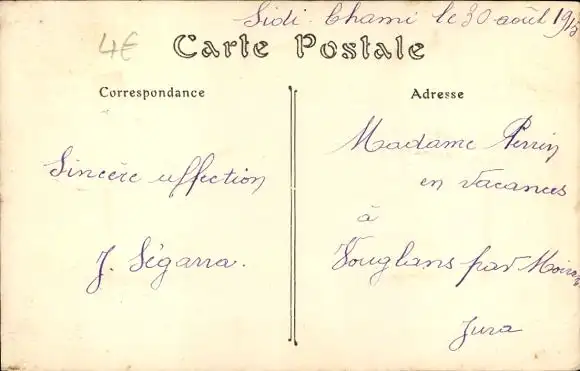 Sidi-Chami le 30 août 1913
4€
Carte Postale
Correspondance
Adresse
Sincère affection
J. Ségarra.
Madame Perrin
en vacances
à
Vouglans par Moirans
Jura